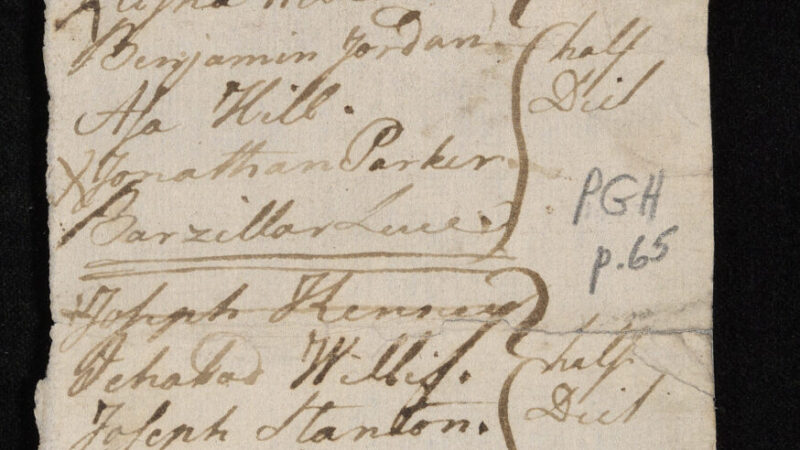 Benjamin Jordan half
Asa Hill. Diet
x Jonathan Parker
PGH
Barzillar Luce
p.65
x Joseph Kenney
Ichabod Willis. half
Joseph Stanton. Diet